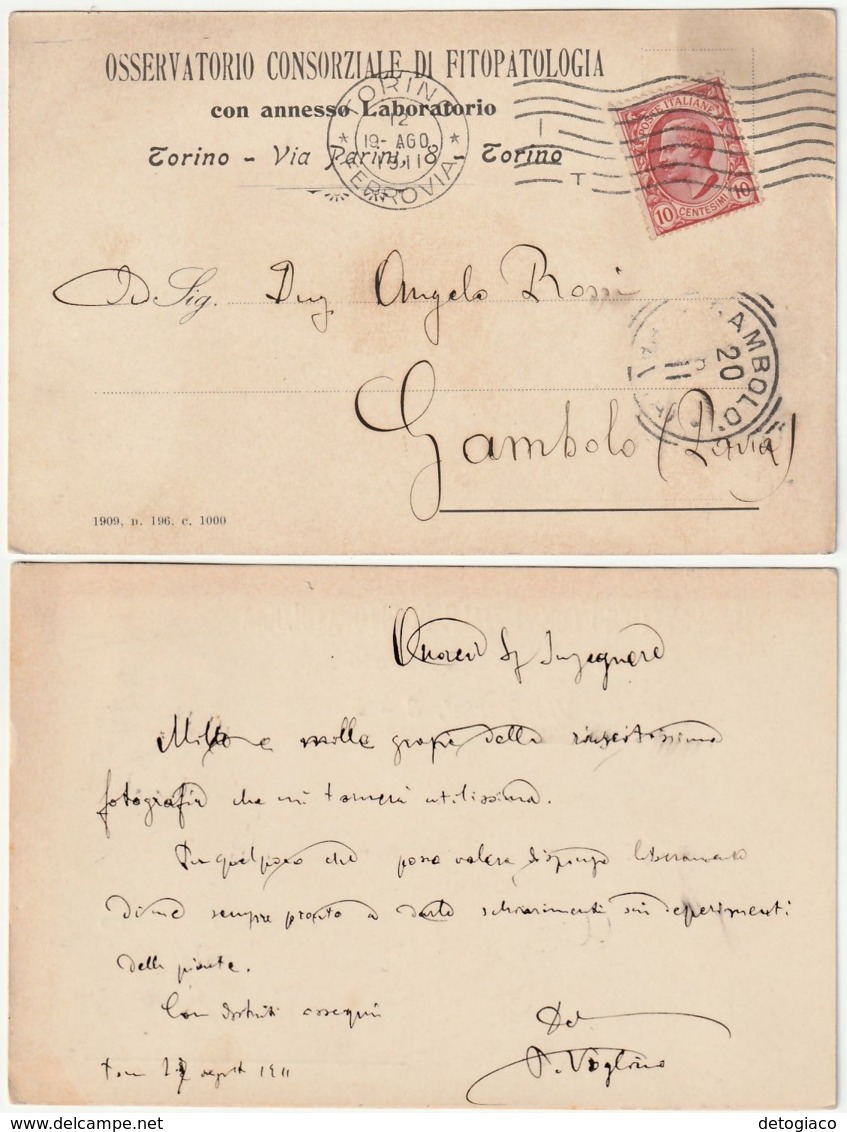 OSSERVATORIO CONSORZIALE DI FITOPATOLOGIA
con annesso Laboratorio
Torino - Via Parini, 8 - Torino
TORINO
12
19- AGO
1911
FERROVIA
POSTE ITALIANE
10 CENTESIMI 10
Sig. Ing Angelo Rossi
GAMBOLO'
20
8
11
Gambolo (Pavia)
1909, n. 196. c. 1000
Onorev Sg Ingegnere
Mille e mille grazie della riuscitissima
fotografia che mi tornerà utilissima.
In quel poco che posso valere disponga liberamente
di me sempre pronto a darle schiarimenti sui deperimenti
delle piante.
Con distinti ossequi
Del
P. Voglino
1911
detogiaco